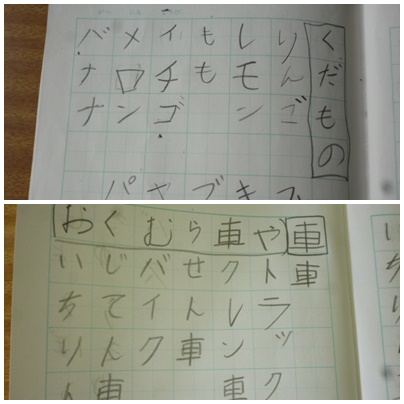 くだもの
りんご
レモン
もも
イチゴ
メロン
バナナ
車
車
おくむら車や
トラック
クレン車
せん車
バイク
じてん車
いちりん